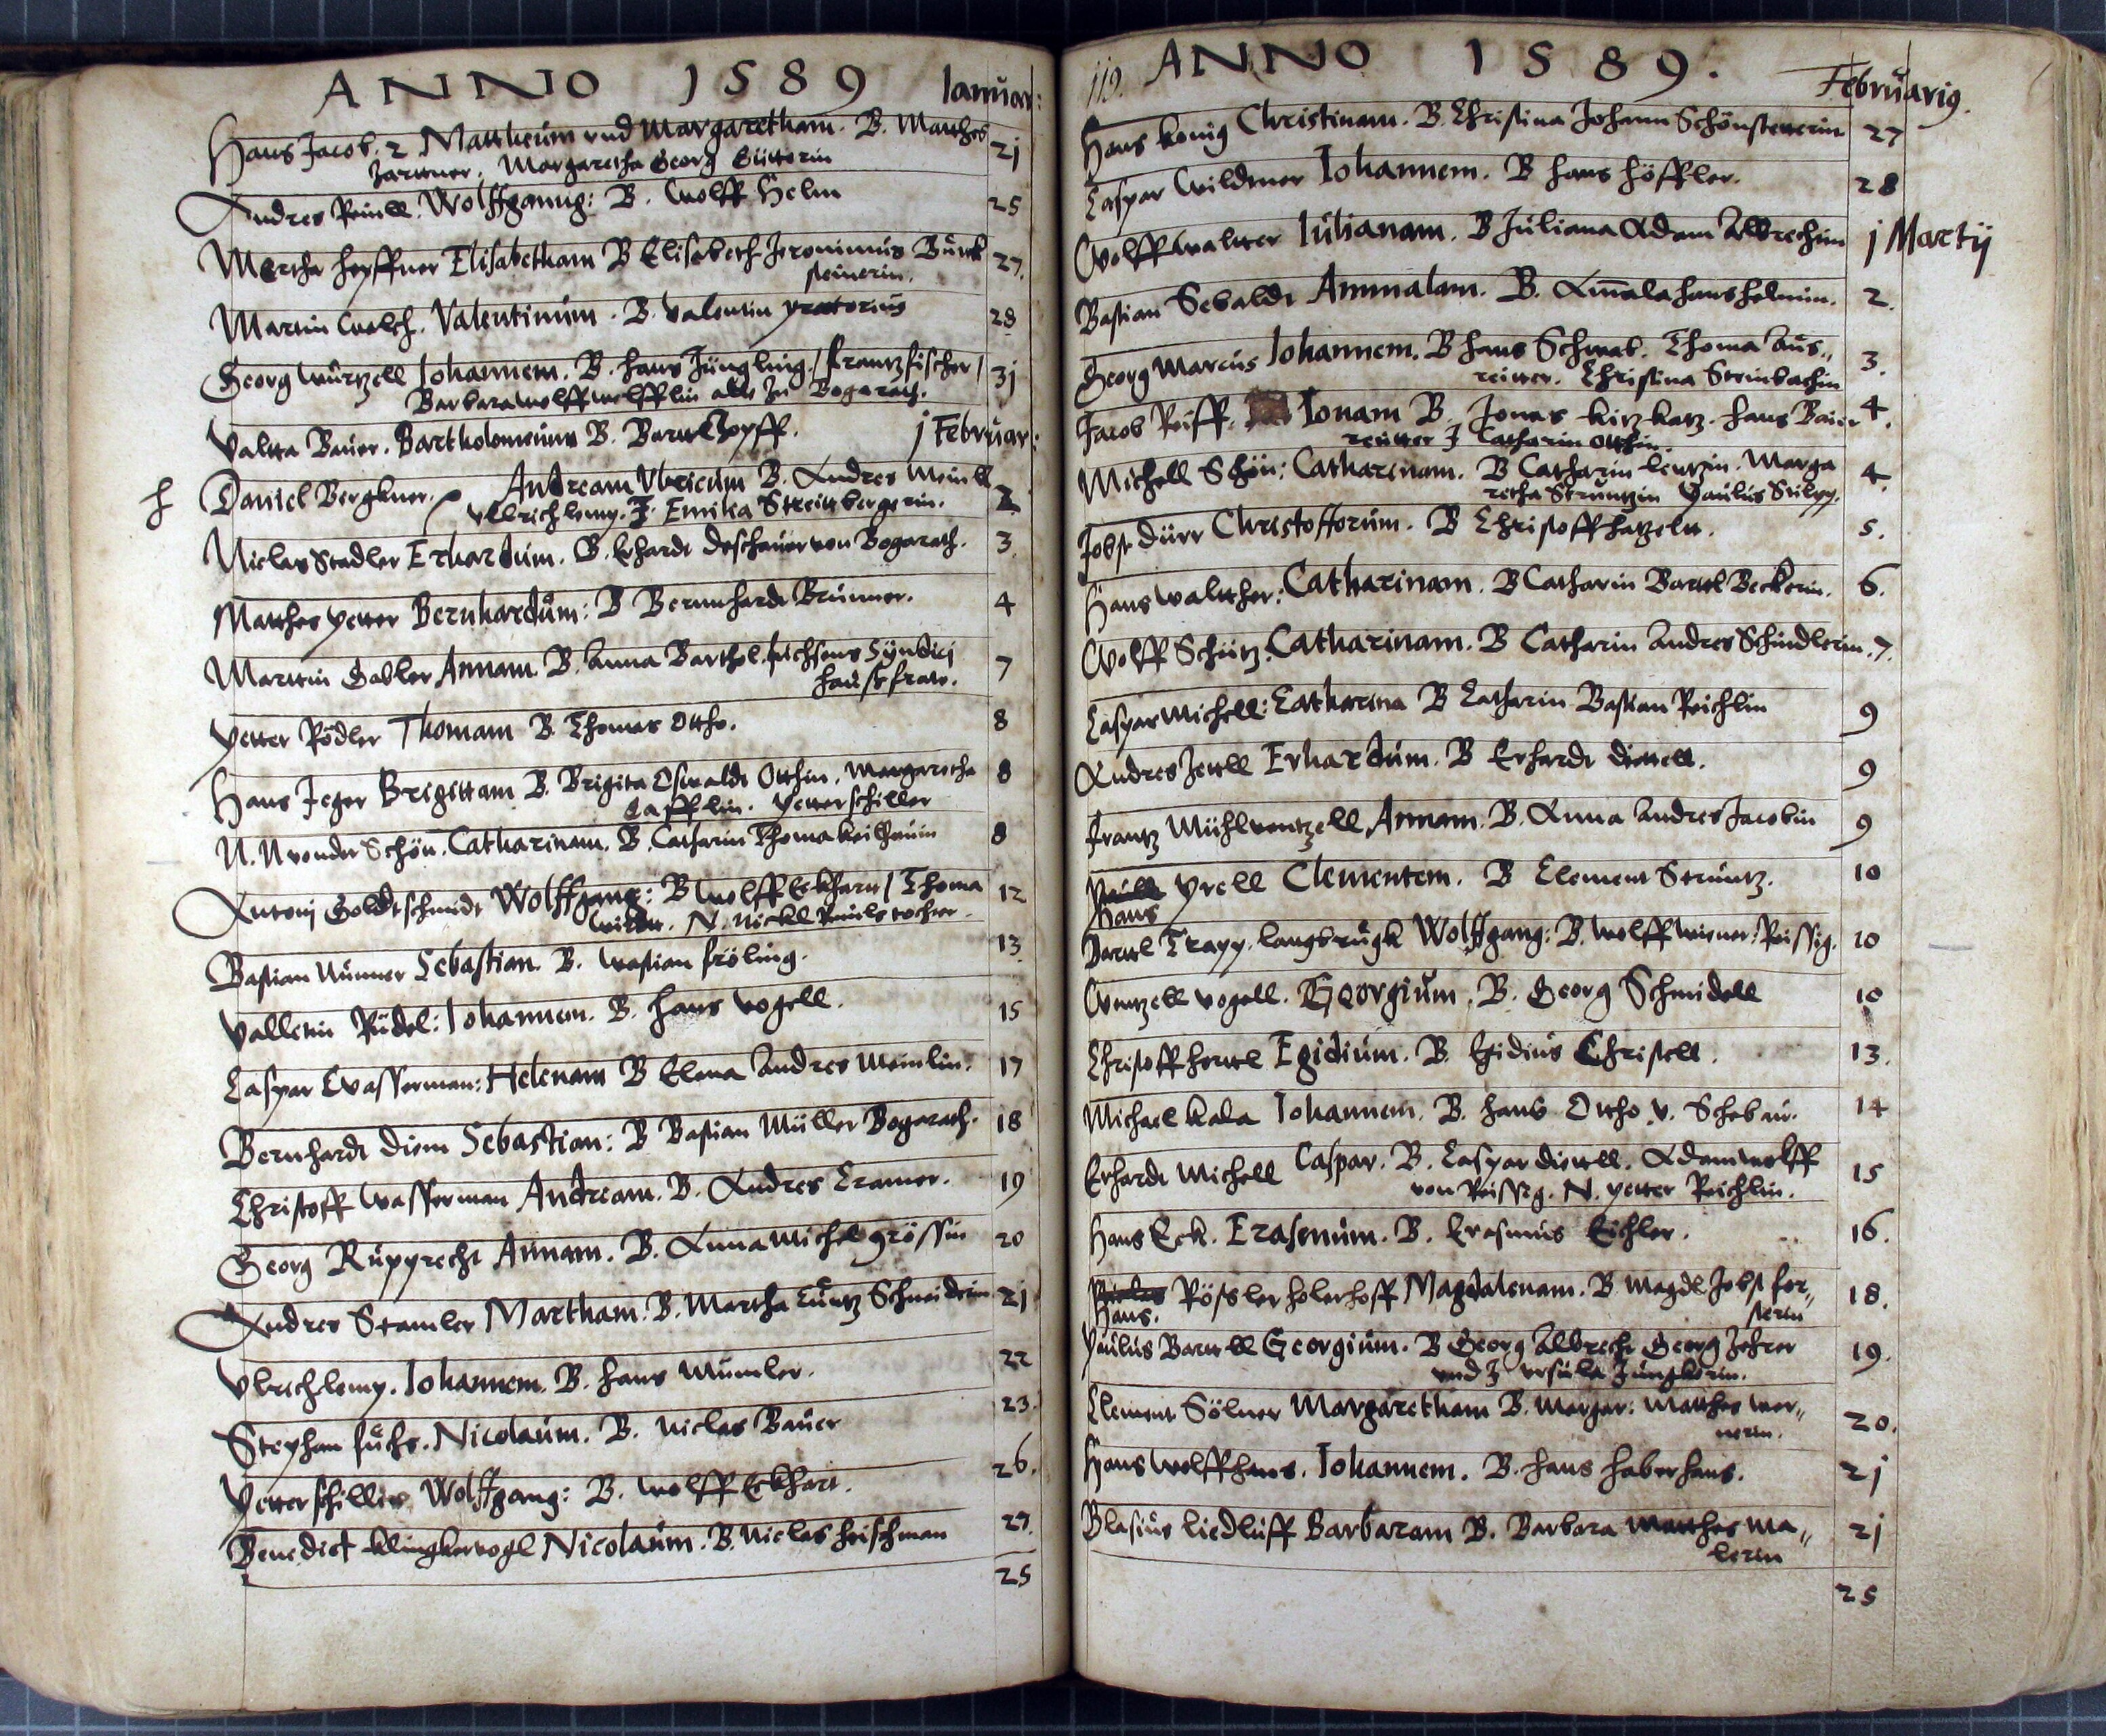 ANNO 1589 Ianuar:
Hans Jacob. 2 Mattheum vnd Margaretham. B. Matthes 21
Zarttner. Margaretha Georg Güttorin
Andres Peinll. Wolffgangg: B. Wolff Helm 25
Mertha heyffner Elisabetham B Elisabeth Jeronimus Burck 27.
steinerin.
Martin Welsch. Valentinum. B. Valentin pretorius 28
Georg Würtzell Johannem. B. hans Jüngling / frantz fischer / 31
Barbara wolff wolfflin alle zu Bogarath.
Valtta Bauer. Bartholomeum B. Bartl Zopff. 1 Februar:
h Daniel Bergkner. Andream Vlricum B. Andres Meinll 2
Vllrich lemp. J. Emika Streittbergerin.
Niclas Stadler Erhardum. B. Erhardt deschauer von Bogarath. 3.
Matthes petter Bernhardum: B Bernnhardt Brunner. 4
Marttin Gabler Annam. B. Anna Barthol. fuchsens Syndici 7
haussfraw.
petter Rödler Thomam B. Thomas Ottho. 8
Hans Jeger Brigittam B. Brigita Oswaldt Otthin. Margaretha 8
Lafflin. Petter schiller
N. N von der Schön. Catharinam. B. Catharin Thoma 8
Antonj Goldtschmidt Wolffgang: B Wolff Eckhart / Thoma 12
N. Nickl Peinls tochter.
Bastian Nunner Sebastian. B. Wastian fröling. 13.
Valletin Rüdel: Johannem. B. hans Vogell. 15
Caspar Wasserman: Helenam B Elena Andres Meinlin. 17
Bernhardt diem Sebastian: B Bastian Müller Bogarath. 18
Christoff Wasserman Andream. B. Andres Cramer. 19
Georg Rupprecht Annam. B. Anna Michel grössin 20
Andres Stamler Martham. B. Martha Cuntz Schneiderin 21
Vlrich lemp. Johannem. B. hans Mümler. 22
Stephan fuchs. Nicolaum. B. Niclas Bauer 23.
Petter schiller Wolffgang: B. Wolff Eckhart. 26.
Benedict klingkervogl Nicolaum. B. Niclas heischman 27.
25
119. ANNO 1589. Februarig.
Hans konig Christinam. B. Christina Johann Schönstetterin 27
Caspar Wildtner Iohannem. B hans höffler. 28
Wolff waltter Iulianam. B Juliana Adam Albrechtin 1 Martij
Bastian Sebaldt Ammalam. B. Amala hans helmin. 2.
Georg Marcus Iohannem. B hans Schwab. Thoma Aus,, 3.
reitter. Christina Steinbachin
Jacob Reiff. Ionam B. Jonas kirzkatz. hans Bauer 4.
reutter J Catharin Otthin.
Michell Schön: Catharinam. B Catharin lentzin. Marga 4.
retha Strüntzin Paulus Stilpp.
Jobst Dürr Christofforum. B Christoff hatzelt. 5.
Hans waltther: Catharinam. B Catharin Barttl Beckerin. 6.
Wolff Schütz. Catharinam. B Catharin Andres Schindlerin. 7.
Caspar Michell: Catharina B Catharin Bastian Reichlin 9
Andres Zettll Erhardum. B Erhardt diettell. 9
frantz Mühlwentzell Annam. B. Anna Andres Jacobin 9
prell Clementem. B Clement Strüntz. 10
Hans
Barttl Trapp. langbrugk Wolffgang: B. Wolff wisner: Reissig. 10
Wentzell vogell. Georgium. B. Georg Schmidell 10
Christoff herttl Egidium. B. Egidius Christell. 13.
Michael kada Iohannem. B. hans Ottho v. Scheban. 14
Erhardt Michell Caspar. B. Caspar diettell. Adam wolff 15
von Reissig. N. petter Reichlin.
Hans Eck. Erasmum. B. Erasmus Eichler. 16.
Rössler holerhoff Magdalenam. B Magdl Jobst for,, 18.
Hans. sterin
Paulus Barttll Georgium. B Georg Albrecht Georg Zehrer 19.
vnd J vrsula Jungkerin.
Clement Sölner Margaretham B. Margar: Matthes wer,, 20.
nerin.
Hans Wolffhans. Iohannem. B. hans haberhans. 21
Blasius liedluff Barbaram B. Barbara Matthes Ma,, 21
lerin
25